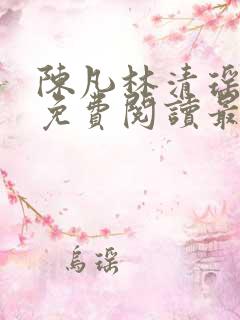 陳凡林清瑤
免費閱讀最
烏瑤